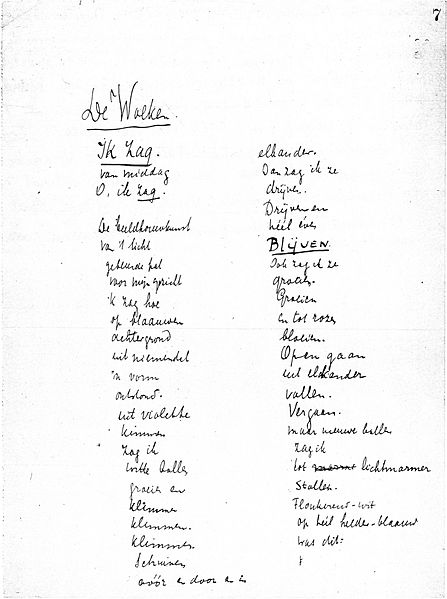 7
De Wolken.
Ik zag.
van middag
O, ik zag.
De beeldhouwkunst
van 't licht
gebeurde pal
voor mijn gezicht
ik zag hoe
op blaauwen
achtergrond
uit niemendal
'n vorm
ontstond.
uit violette
kimmen
zag ik
witte ballen
groeien en
klimmen
klimmen.
klimmen
Schuinen
óvér en door en in
elkander.
Dan zag ik ze
drijven.
Drijven en
héél éven
BLIJVEN.
Ook zag ik ze
groeien.
Groeien
en tot rozen
bloeien.
Open gaan
uit elkander
vallen.
Vergaan.
maar nieuwe ballen
zag ik
tot lichtmarmer
Stollen.
Flonkerend-wit
op heil helder-blaauw
was dit: